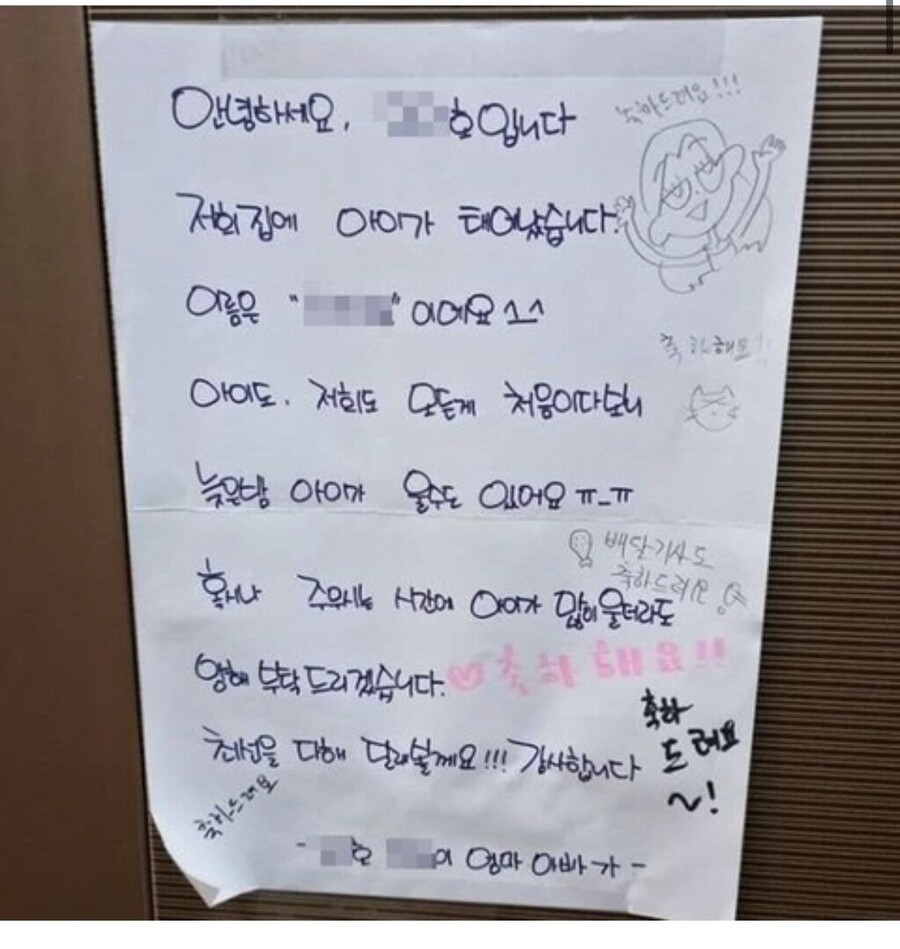 안녕하세요. 호입니다
축하드려요!!!
저희집에 아이가 태어났습니다.
이름은 " " 이에요^^
축하해요!!
아이도. 저희도 모든게 처음이다보니
늦은밤 아이가 울수도 있어요 ㅠ_ㅠ
배달기사도
축하드려요
혹시나 주무시는 시간에 아이가 많이 울더라도
양해 부탁드리겠습니다.
♡축하해요!!
최선을 다해 달래볼께요!!! 감사합니다
축하
드려요
~!
축하드려요
- 호 이 엄마 아빠가 -